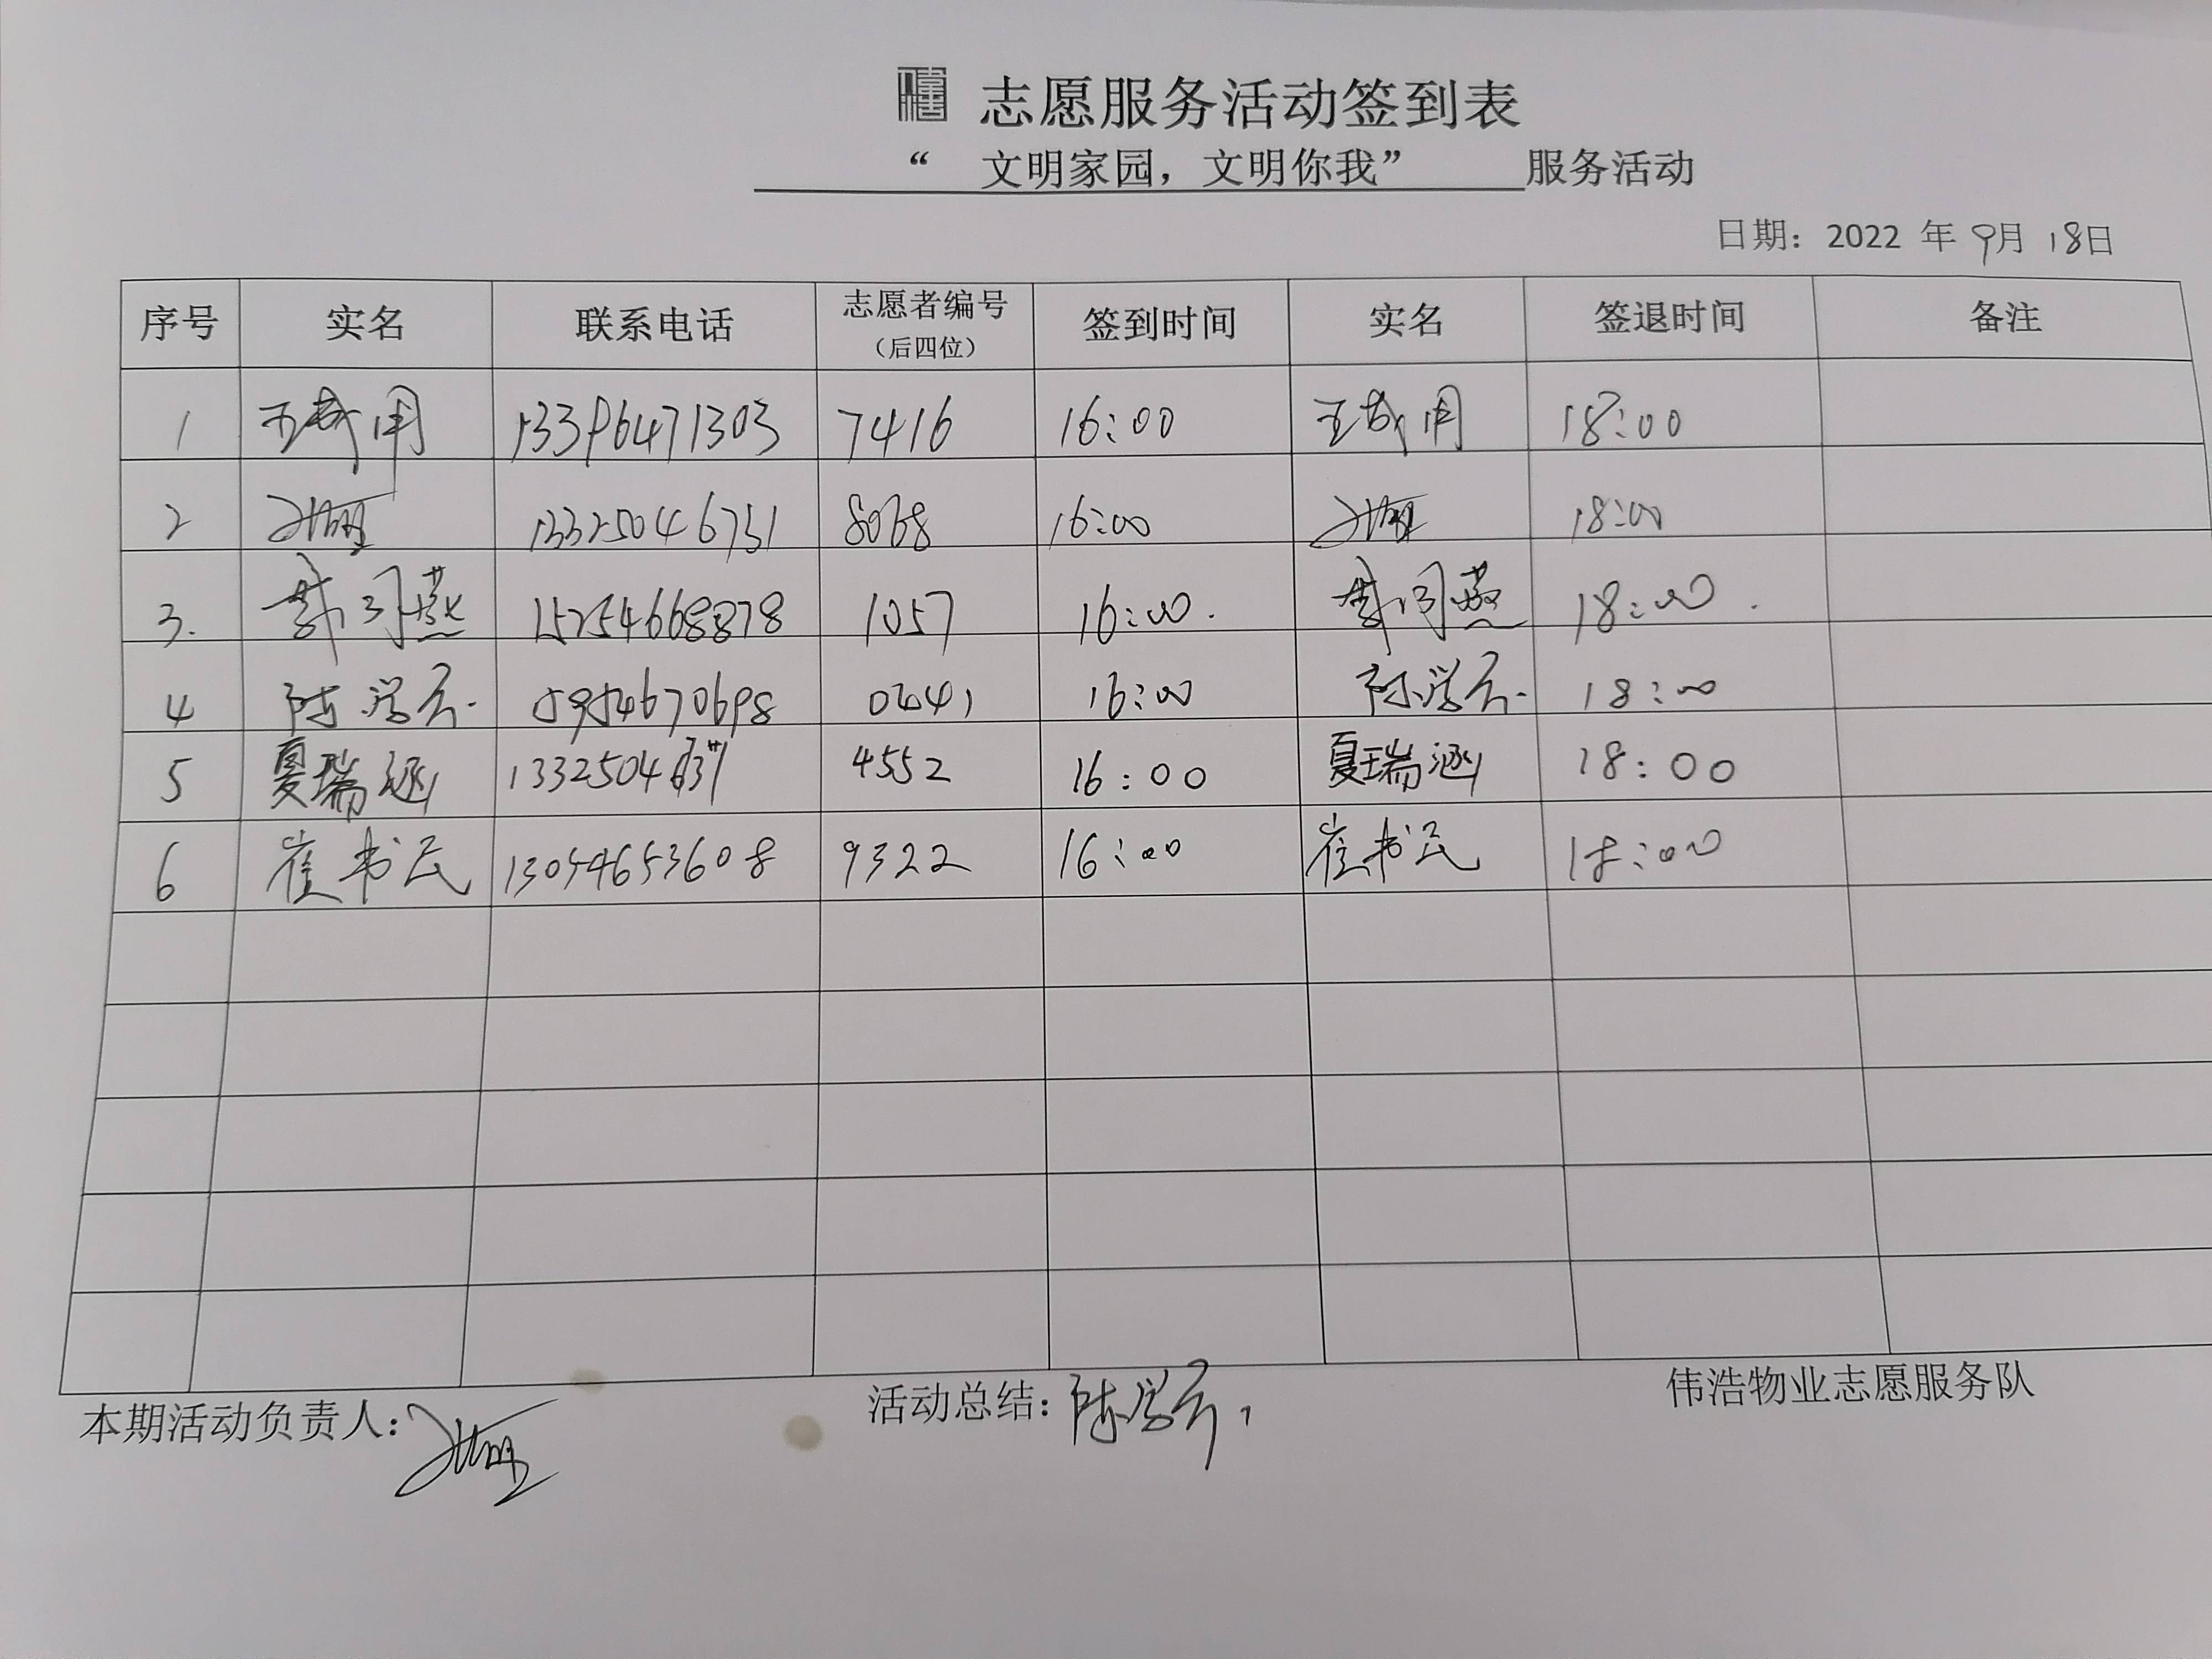 志愿服务活动签到表
“ 文明家园，文明你我” 服务活动
日期：2022 年 9月 18日
序号 实名 联系电话 志愿者编号（后四位） 签到时间 实名 签退时间 备注
1 13396471303 7416 16:00 18:00
2 13325046731 8068 16:00 18:00
3. 15254668878 1057 16:00. 18:00.
4 陈学云. 0641 16:00 陈学云. 18:00
5 夏瑞涵 4552 16:00 夏瑞涵 18:00
6 崔书民 13054653608 9322 16:00 崔书民 18:00
本期活动负责人： 活动总结：陈学云 伟浩物业志愿服务队